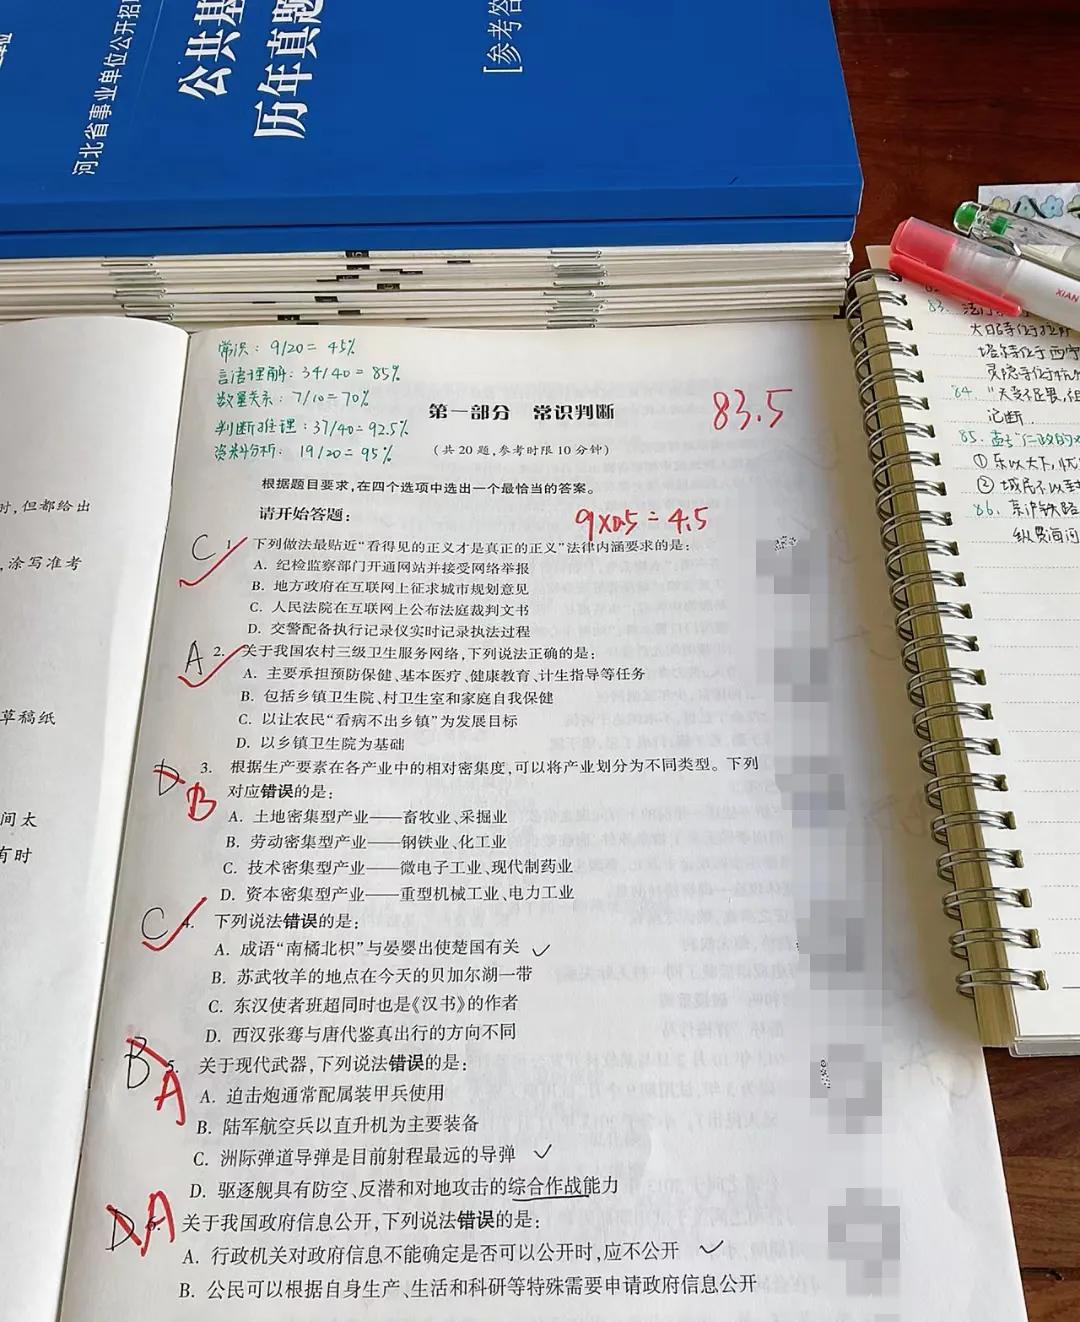 河北省事业单位公开招
公共基
历年真题
[参考答
常识: 9/20 = 45%
言语理解: 34/40 = 85%
数量关系: 7/10 = 70%
判断推理: 37/40 = 92.5%
资料分析: 19/20 = 95%
第一部分 常识判断
83.5
(共20题,参考时限10分钟)
根据题目要求,在四个选项中选出一个最恰当的答案。
请开始答题:
9×0.5 = 4.5
C 1. 下列做法最贴近“看得见的正义才是真正的正义”法律内涵要求的是:
A. 纪检监察部门开通网站并接受网络举报
B. 地方政府在互联网上征求城市规划意见
C. 人民法院在互联网上公布法庭裁判文书
D. 交警配备执行记录仪实时记录执法过程
A 2. 关于我国农村三级卫生服务网络,下列说法正确的是:
A. 主要承担预防保健、基本医疗、健康教育、计生指导等任务
B. 包括乡镇卫生院、村卫生室和家庭自我保健
C. 以让农民“看病不出乡镇”为发展目标
D. 以乡镇卫生院为基础
D B 3. 根据生产要素在各产业中的相对密集度,可以将产业划分为不同类型。下列
对应错误的是:
A. 土地密集型产业——畜牧业、采掘业
B. 劳动密集型产业——钢铁业、化工业
C. 技术密集型产业——微电子工业、现代制药业
D. 资本密集型产业——重型机械工业、电力工业
C 4. 下列说法错误的是:
A. 成语“南橘北枳”与晏婴出使楚国有关
B. 苏武牧羊的地点在今天的贝加尔湖一带
C. 东汉使者班超同时也是《汉书》的作者
D. 西汉张骞与唐代鉴真出行的方向不同
B A 5. 关于现代武器,下列说法错误的是:
A. 迫击炮通常配属装甲兵使用
B. 陆军航空兵以直升机为主要装备
C. 洲际弹道导弹是目前射程最远的导弹
D. 驱逐舰具有防空、反潜和对地攻击的综合作战能力
D A 6. 关于我国政府信息公开,下列说法错误的是:
A. 行政机关对政府信息不能确定是否可以公开时,应不公开
B. 公民可以根据自身生产、生活和科研等特殊需要申请政府信息公开
时,但都给出
,涂写准考
草稿纸
间太
有时
XIAN
83.
84.
记断.
85.
①乐以天下,忧
②域民不以封
86. 京沪铁路